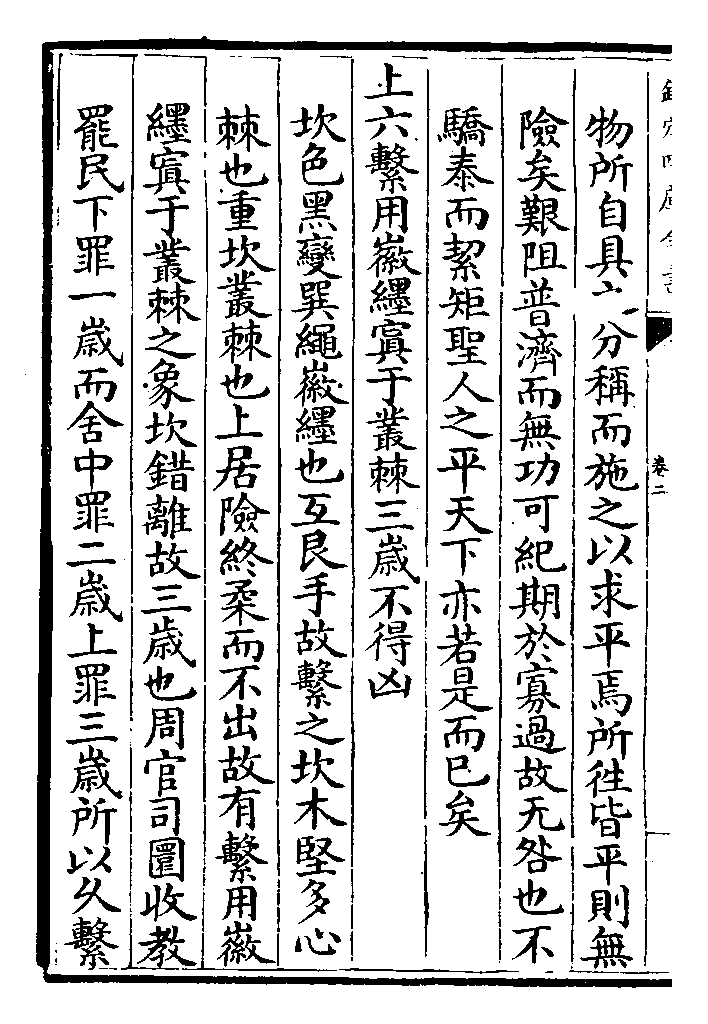 物所自具六分稱而施之以求平焉所徃皆平則無
險矣艱阻普濟而無功可紀期於寡過故无咎也不
驕泰而絜矩聖人之平天下亦若是而已矣
上六繫用徽纆寘于叢棘三歲不得凶
坎色黑變巽繩徽纆也互艮手故繫之坎木堅多心
棘也重坎叢棘也上居險終柔而不出故有繫用徽
纆寘于叢棘之象坎錯離故三歲也周官司圜收教
罷民下罪一歲而舍中罪二歲上罪三歲所以久繫
卷二